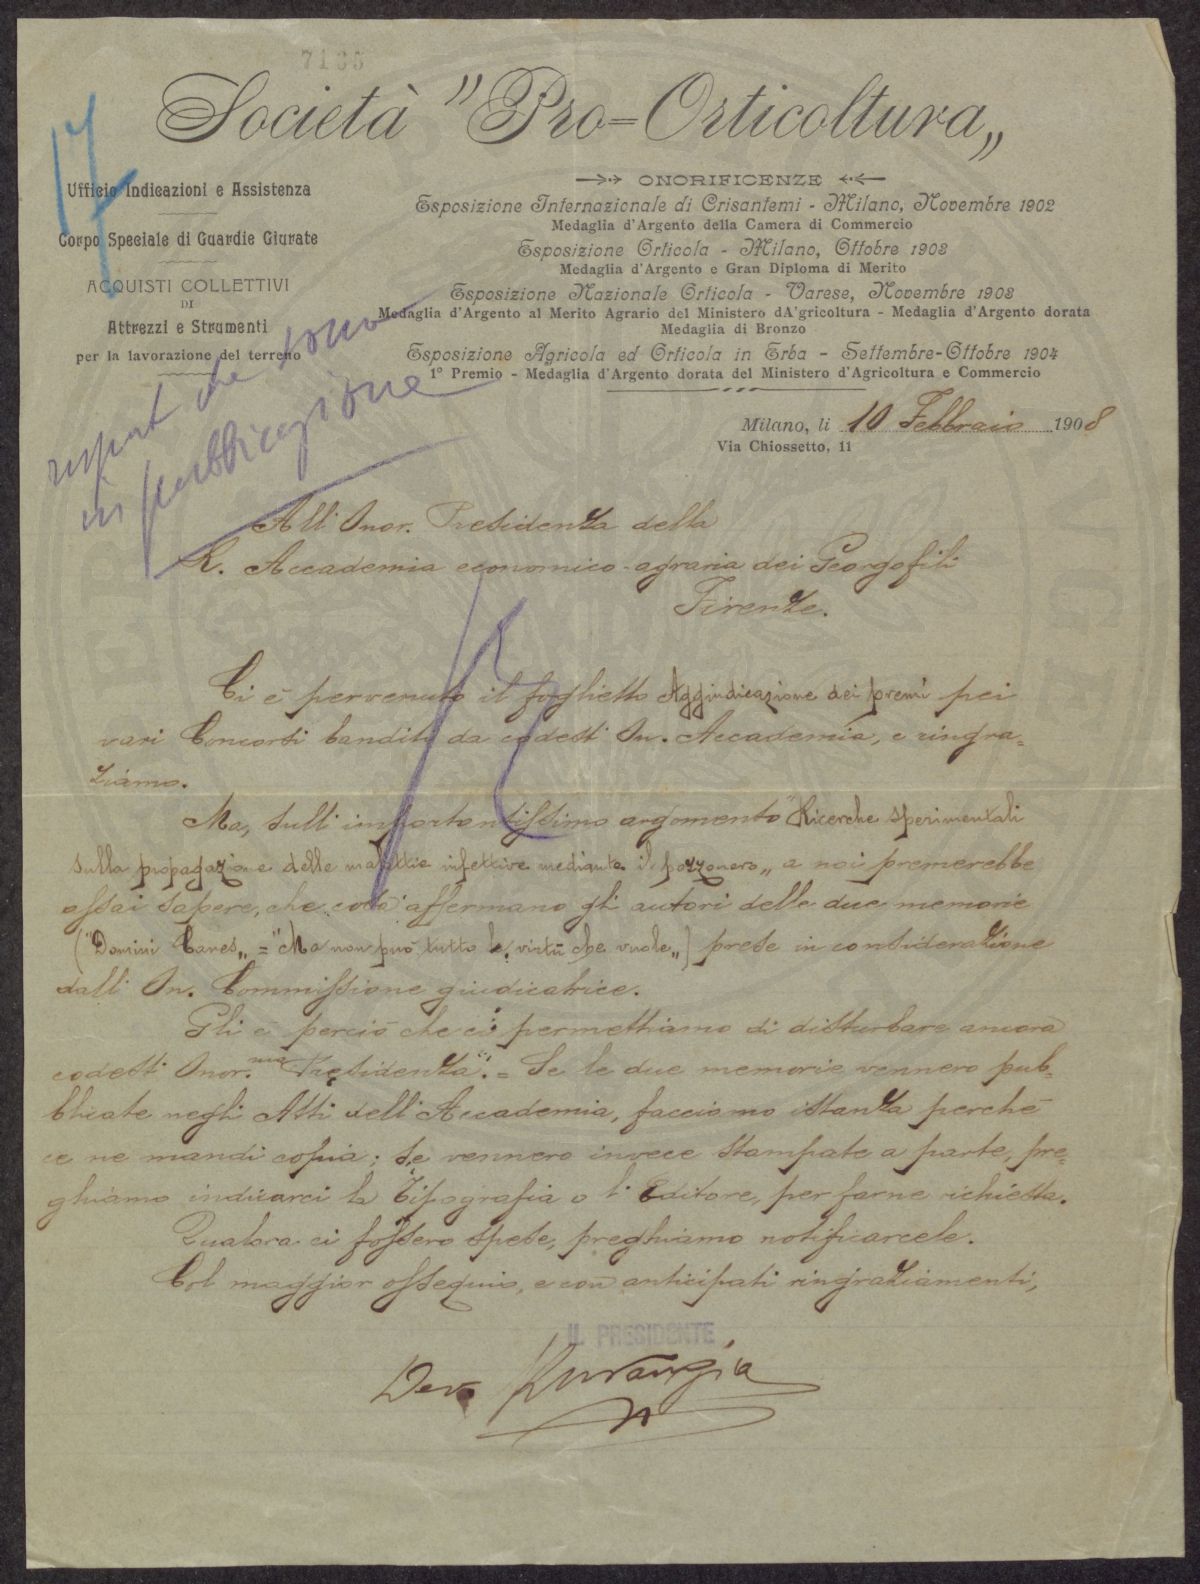 7135
Società "Pro=Orticoltura„
17
Ufficio Indicazioni e Assistenza
Corpo Speciale di Guardie Giurate
ACQUISTI COLLETTIVI
DI
Attrezzi e Strumenti
per la lavorazione del terreno
ONORIFICENZE
Esposizione Internazionale di Crisantemi - Milano, Novembre 1902
Medaglia d'Argento della Camera di Commercio
Esposizione Orticola - Milano, Ottobre 1903
Medaglia d'Argento e Gran Diploma di Merito
Esposizione Nazionale Orticola - Varese, Novembre 1903
Medaglia d'Argento al Merito Agrario del Ministero dA'gricoltura - Medaglia d'Argento dorata
Medaglia di Bronzo
Esposizione Agricola ed Orticola in Erba - Settembre-Ottobre 1904
1° Premio - Medaglia d'Argento dorata del Ministero d'Agricoltura e Commercio
che sono
in pubblicazione
Milano, li 10 Febbraio 1908
Via Chiossetto, 11
All'Onor. Presidenza della
R. Accademia economico-agraria dei Georgofili
Firenze.
Ci è pervenuto il foglietto Aggiudicazione dei premi pei
vari Concorsi banditi da codest'On. Accademia, e ringra=
ziamo.
Ma, sull'importantissimo argomento "Ricerche sperimentali
sulla propagazione delle malattie infettive mediante il pozzonero„ a noi premerebbe
assai sapere, che cosa affermano gli autori delle due memorie
("Domini Canes„ = "Ma non può tutto la virtù che vuole„) prese in considerazione
dall'On. Commissione giudicatrice.
Gli è perciò che ci permettiamo di disturbare ancora
codest'Onor.ma Presidenza. = Se le due memorie vennero pub=
blicate negli Atti dell'Accademia, facciamo istanza perchè
ce ne mandi copia; se vennero invece stampate a parte, pre=
ghiamo indicarci la Tipografia o l'Editore, per farne richiesta.
Qualora ci fossero spese, preghiamo notificarcele.
Col maggior ossequio, e con anticipati ringraziamenti,
IL PRESIDENTE
Dev.